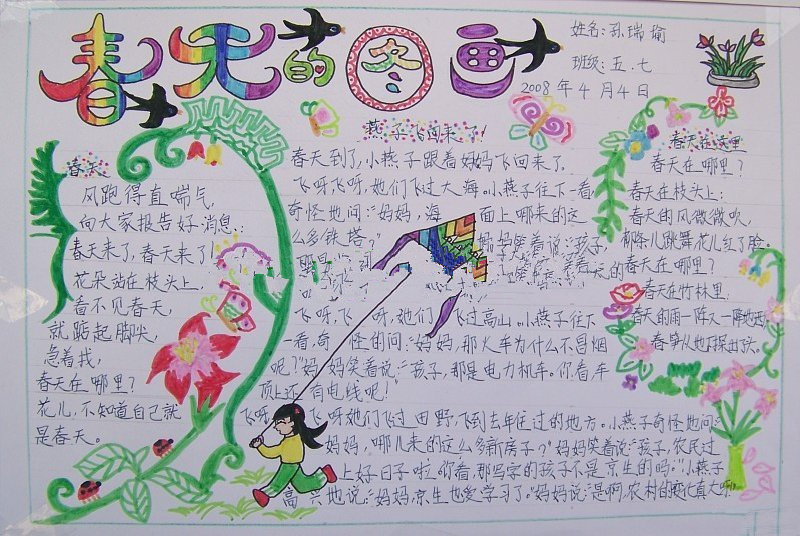 春天的图画
姓名:孙瑞瑜
班级:五.七
2008年4月4日
春天
风跑得直喘气,
向大家报告好消息:
春天来了,春天来了!
花朵站在枝头上,
看不见春天,
就踮起脚尖,
急着找,
春天在哪里?
花儿,不知道自己就
是春天。
燕子飞回来了!
春天到了,小燕子跟着妈妈飞回来了。
飞呀,飞呀,她们飞过大海。小燕子往下一看,
奇怪地问:“妈妈,海面上哪来的这
么多铁塔?”妈妈笑着说:“孩子,
飞呀,飞呀,她们飞过高山。小燕子往下
一看,奇怪的问:“妈妈,那火车为什么不冒烟
呢?”妈妈笑着说:“孩子,那是电力机车。你看,车
顶上还有电线呢!”
飞呀,飞呀她们飞过田野,飞到去年住过的地方。小燕子奇怪地问:“
妈妈,哪儿来的这么多新房子?”妈妈笑着说:“孩子,农民过
上好日子啦。你看,那写字的孩子不是京生的吗?”小燕子
高兴地说:“妈妈,京生也爱学习了。”妈妈说:“是啊,农村的变化真大啊
春天在哪里
春天在哪里?
春天在枝头上:
春天的风微微吹,
柳条儿跳舞花儿红了脸。
春天在哪里?
春天在竹林里:
春天的雨一阵又一阵地洒,